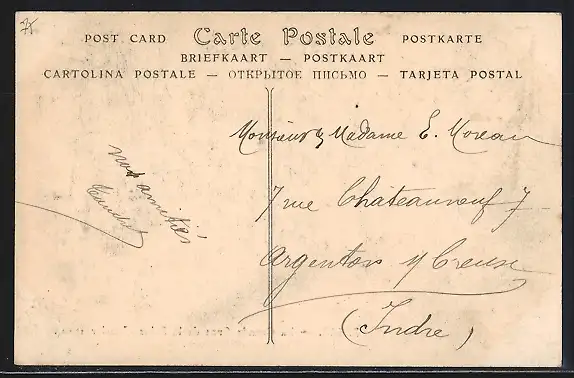 POST CARD Carte Postale POSTKARTE
BRIEFKAART — POSTKAART
CARTOLINA POSTALE — ОТКРЫТОЕ ПИСЬМО — TARJETA POSTAL
Monsieur & Madame E. Moreau
7 rue Châteauneuf 7
Argenton s/ Creuse
(Indre)
amitiés